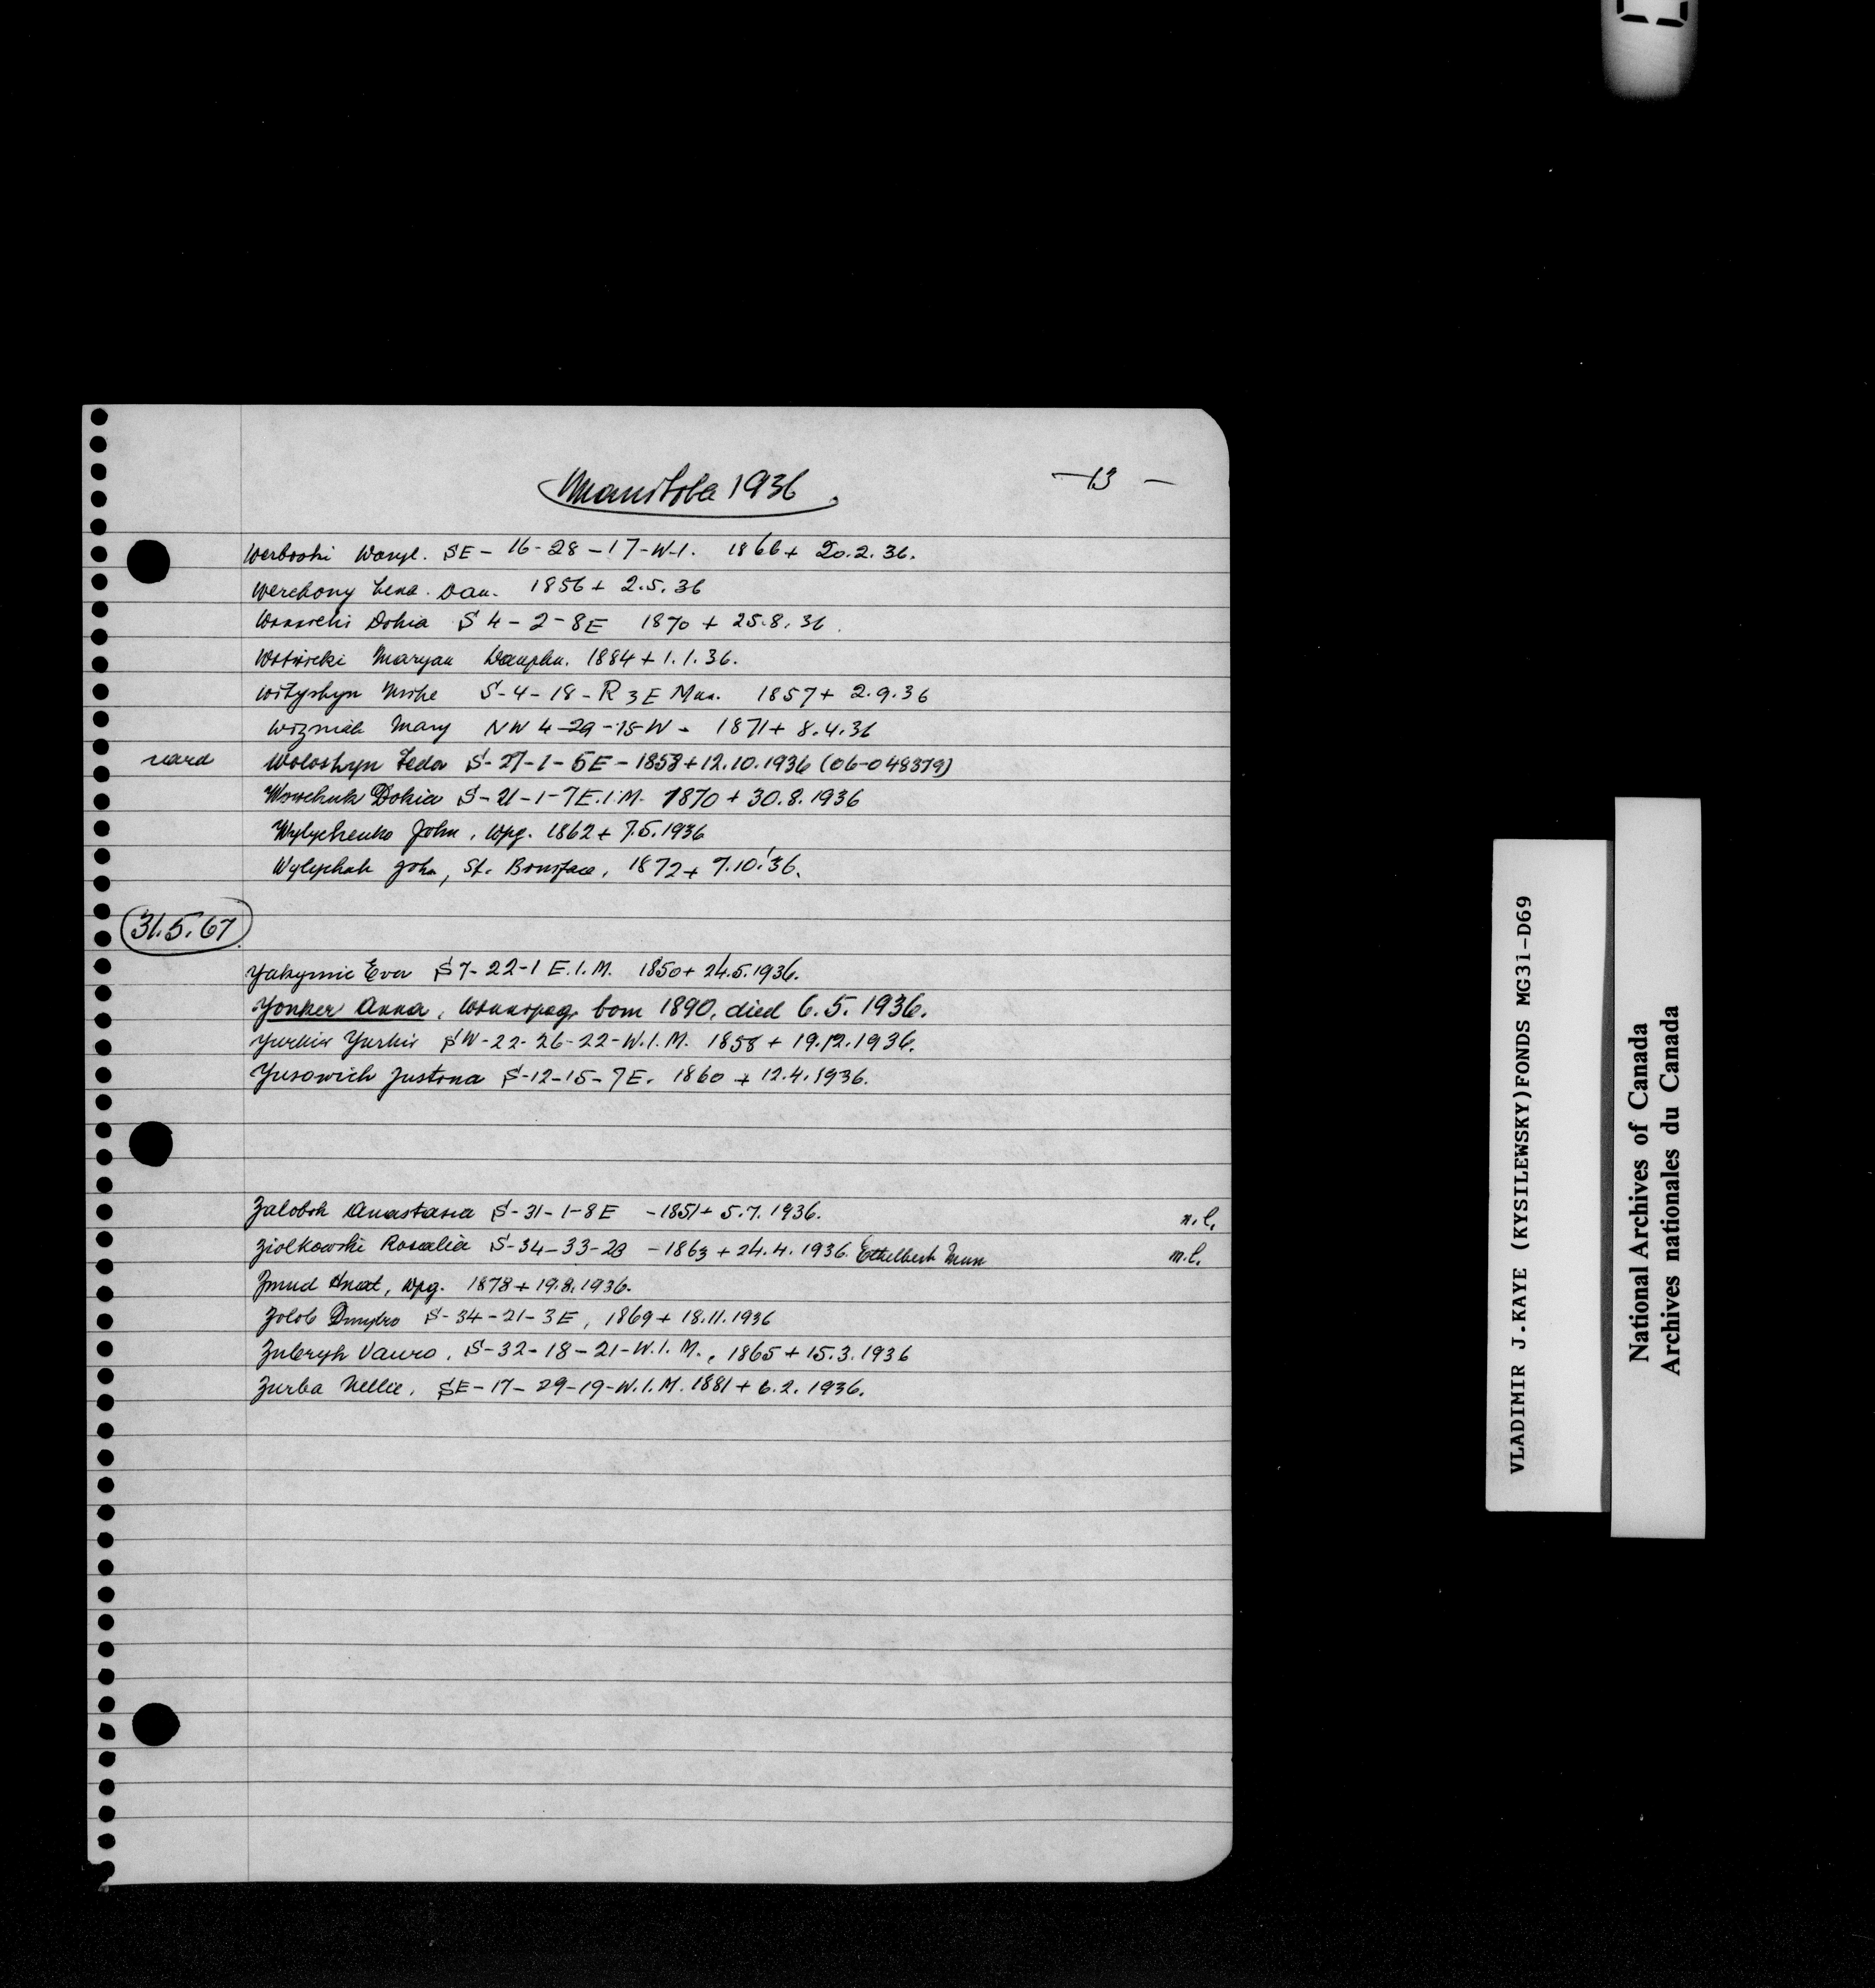 Manitoba 1936
-13-
Werboski Wasyl. SE-16-28-17-W-1. 1866+ 20.2.36.
Werebony Lena. Dau. 1856+ 2.5.36
Dokia S 4-2-8E 1870 + 25.8.36.
Maryan Dauphn. 1884+1.1.36.
Wityshyn Mike S-4-18-R3E Man. 1857+ 2.9.36
Wizniak Mary NW 4-29-15-W- 1871+ 8.4.36
Woloshyn Feda S-27-1-5E-1858+12.10.1936 (06-048379)
Wowchuk Dokia S-21-1-7E.1.M. 1870 + 30.8.1936
Wylychenko John, Wpg. 1862+ 7.5.1936
John, St. Boniface, 1872+ 7.10.'36.
31.5.67.
Yakymic Eva S7-22-1 E.1.M. 1850+ 24.5.1936.
Yonker Anna, Winnipeg, born 1890, died 6.5.1936.
Yurkiw Yurkiv SW-22-26-22-W.1.M. 1858 + 19.12.1936.
Yusowich Justina S-12-15-7E. 1860 + 12.4.1936.
Zaloboh Anastasia S-31-1-8E -1851+ 5.7.1936. n.l.
Ziolkowski Rosalia S-34-33-23 -1863 + 24.4.1936. Ethelbert Man n.l.
Zmud Hnat, Wpg. 1878+19.8.1936.
Zolob Dmytro S-34-21-3E, 1869+ 18.11.1936
Zubryh Vawro, S-32-18-21-W.1.M., 1865+15.3.1936
Zurba Nellie, SE-17-29-19-W.1.M. 1881+ 6.2.1936.
VLADIMIR J.KAYE (KYSILEWSKY)FONDS MG31-D69
National Archives of Canada
Archives nationales du Canada